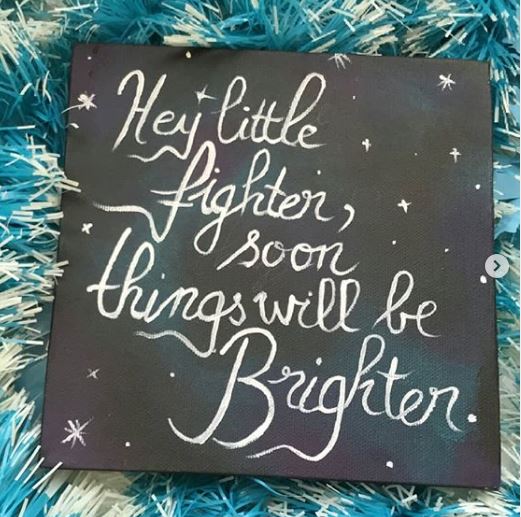 Hey little
fighter,
soon
things will be
Brighter.